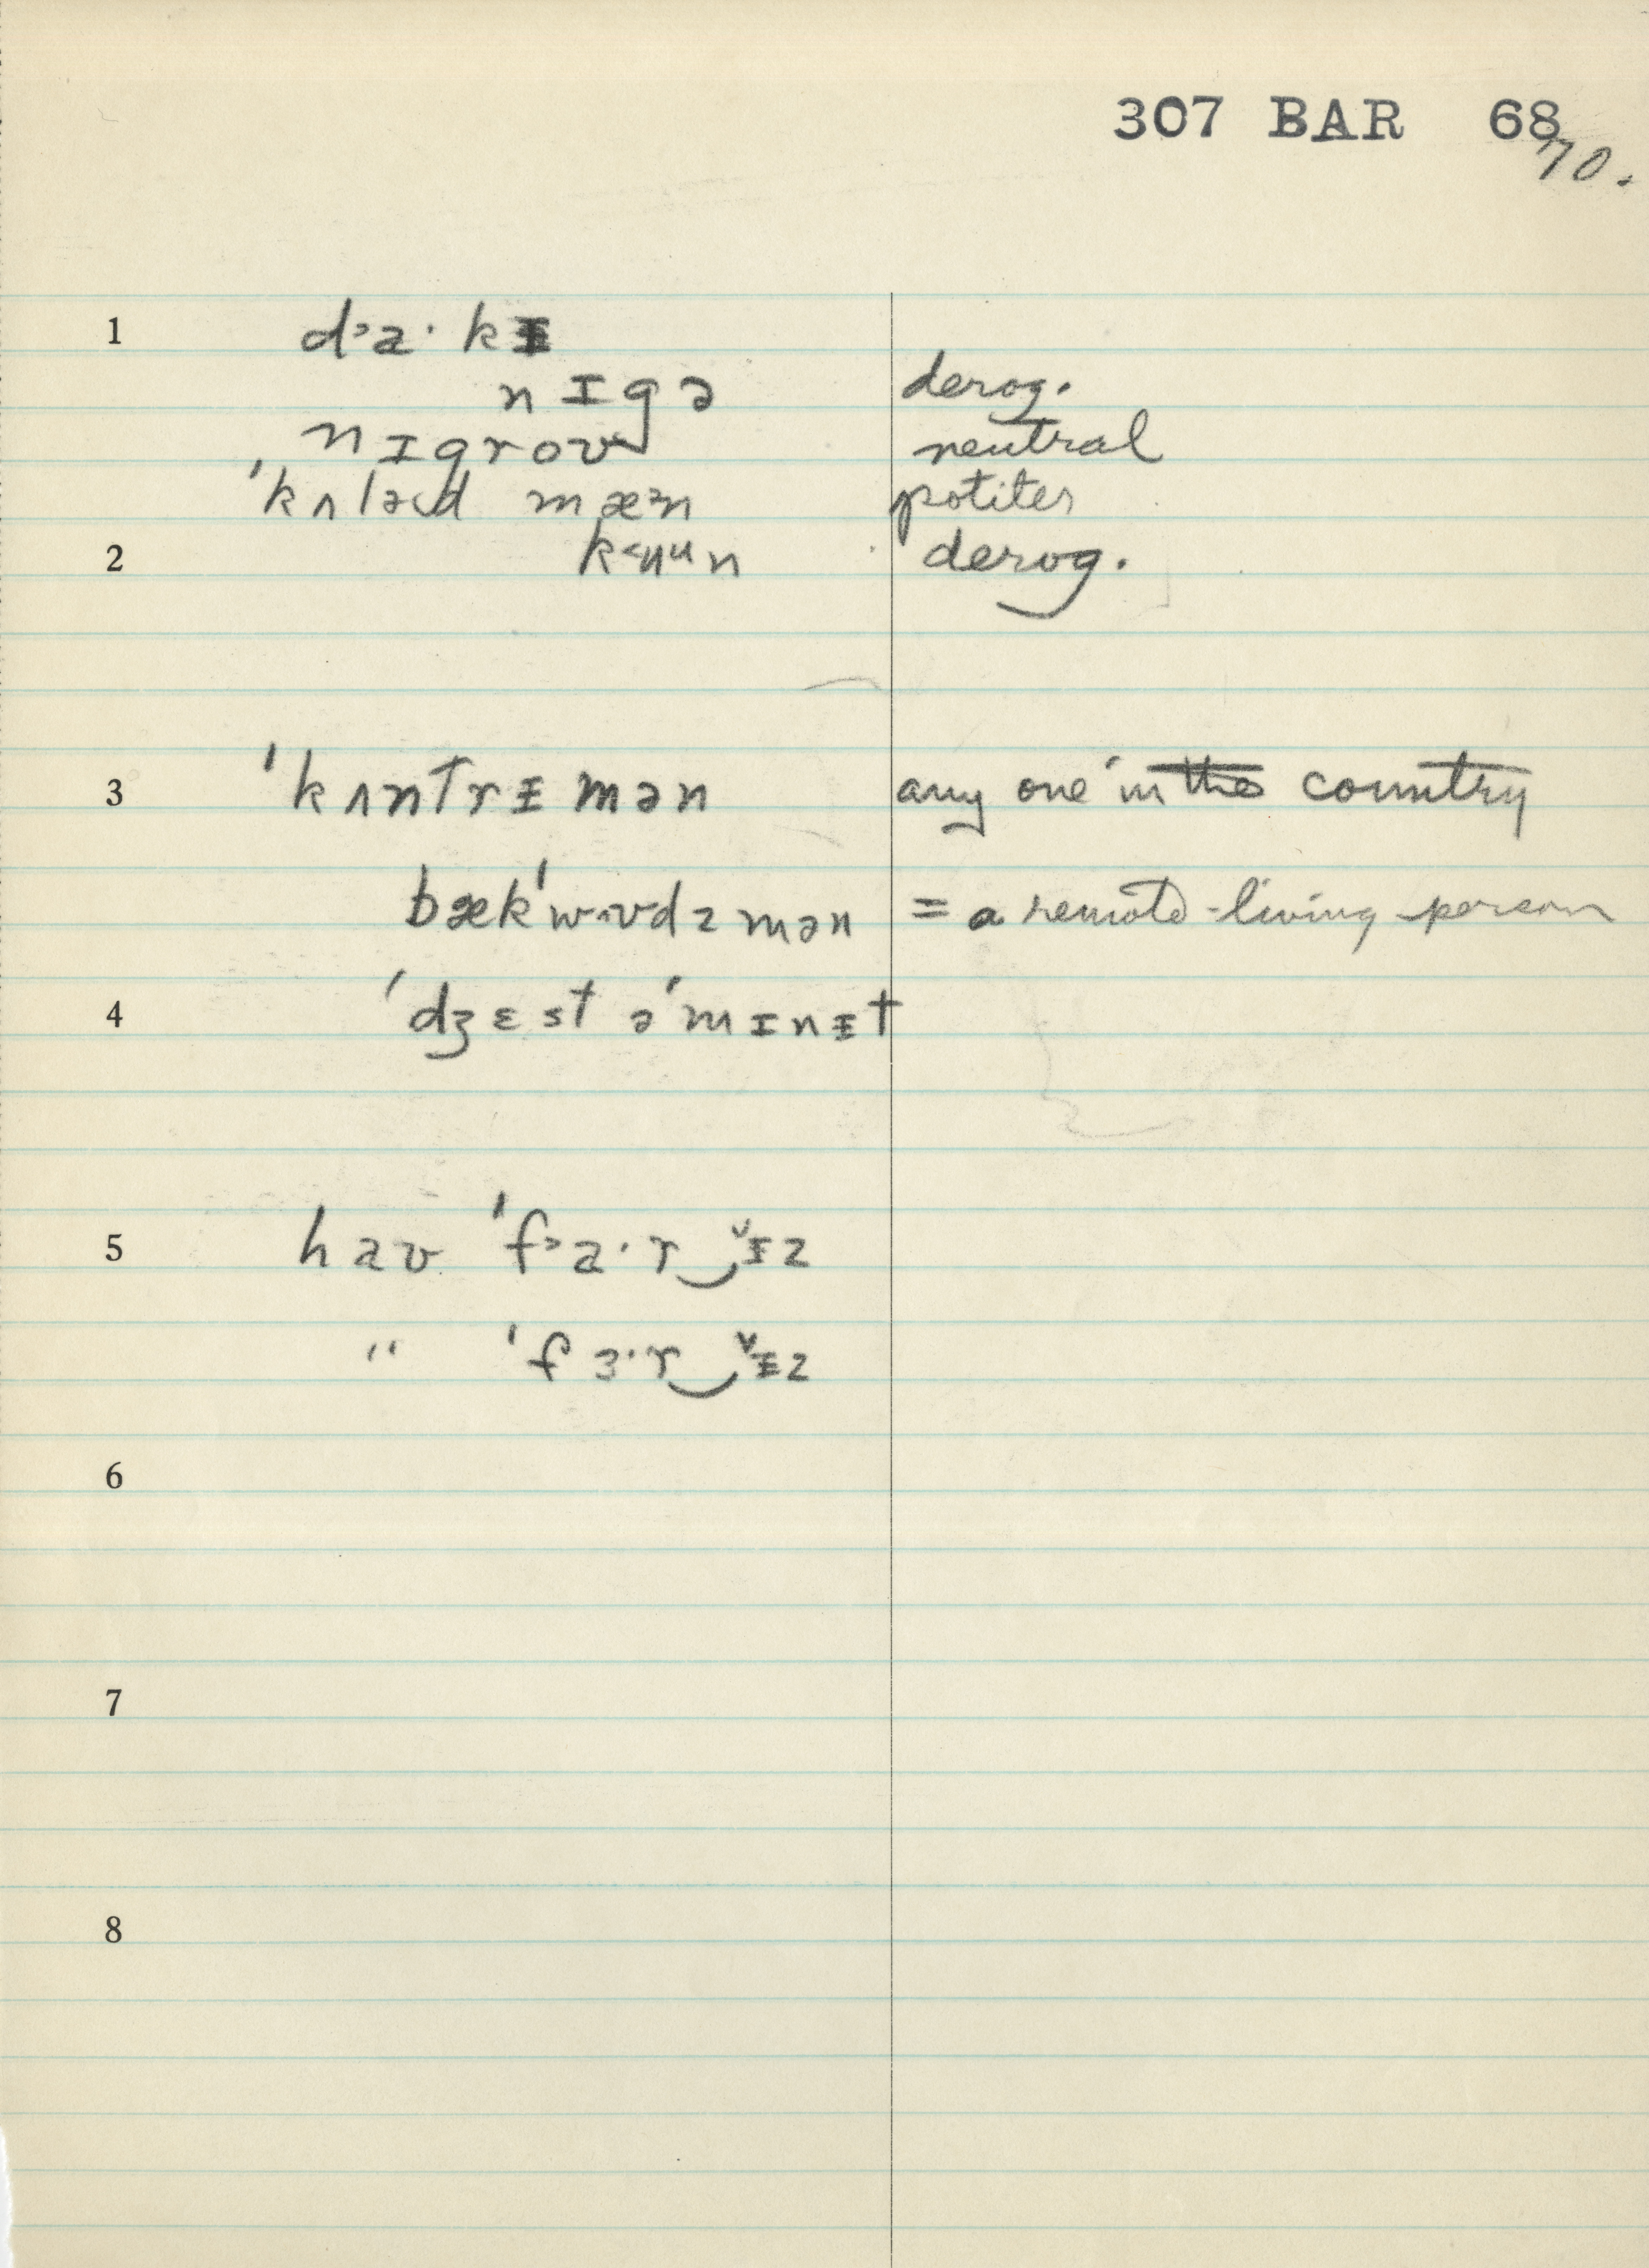 307 BAR 68
70.
1 d˃a·kɪ
nɪgə derog.
nɪgroʊ neutral
'kʌləd mæᵊn politer
2 k˂ʉᵘn derog.
3 'kʌntrɪmən any one in the country
bæk'wʊdzmən = a remote-living person
4 'dʒɛst ə'mɪnɨt
5 haʊ 'f˃a·r‿ɪz
" 'fɜ·r‿ɪz
6
7
8